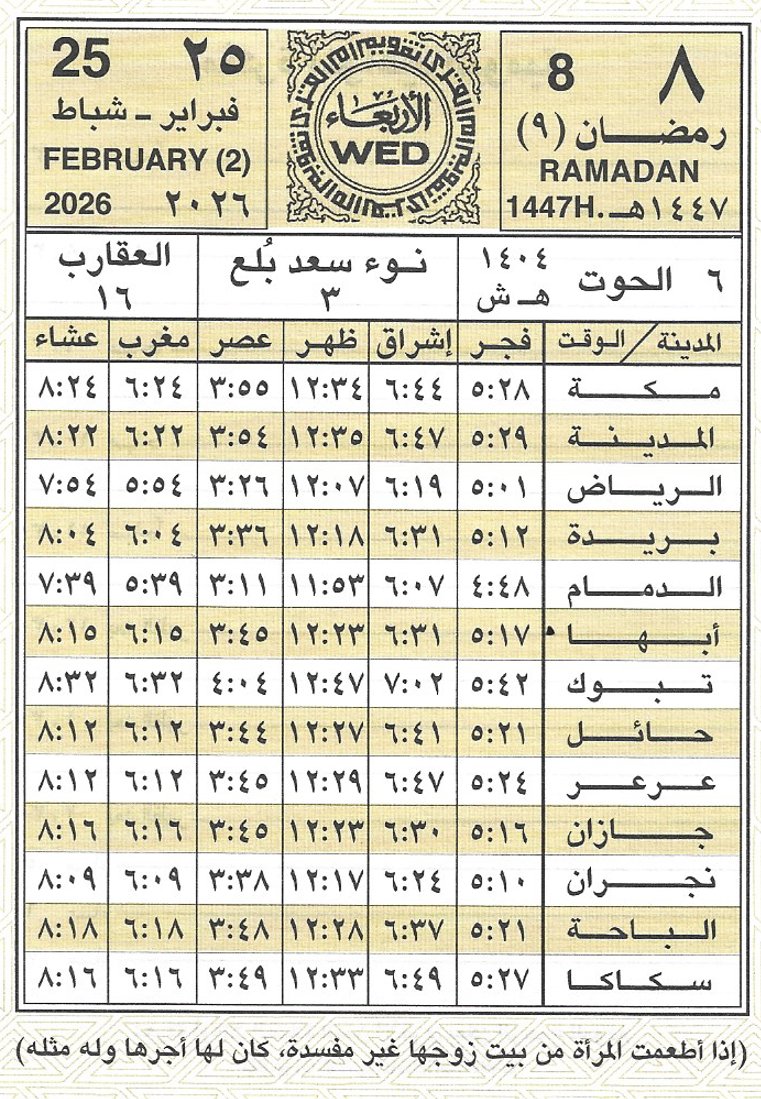 25 ٢٥
فبراير - شباط
FEBRUARY (2)
2026 ٢٠٢٦
تقويم أم القرى
الأربعاء
WED
8 ٨
رمضـــان (٩)
RAMADAN
1447H. ١٤٤٧هـ
٦ الحوت ١٤٠٤ هـ ش
نـوء سعد بُلع ٣
العقارب ١٦
المدينة / الوقت فجر إشراق ظهر عصر مغرب عشاء
مـكـة ٥:٢٨ ٦:٤٤ ١٢:٣٤ ٣:٥٥ ٦:٢٤ ٨:٢٤
المـديـنـة ٥:٢٩ ٦:٤٧ ١٢:٣٥ ٣:٥٤ ٦:٢٢ ٨:٢٢
الـريـاض ٥:٠١ ٦:١٩ ١٢:٠٧ ٣:٢٦ ٥:٥٤ ٧:٥٤
بـريـدة ٥:١٢ ٦:٣١ ١٢:١٨ ٣:٣٦ ٦:٠٤ ٨:٠٤
الـدمـام ٤:٤٨ ٦:٠٧ ١١:٥٣ ٣:١١ ٥:٣٩ ٧:٣٩
أبـهـا ٥:١٧ ٦:٣١ ١٢:٢٣ ٣:٤٥ ٦:١٥ ٨:١٥
تـبـوك ٥:٤٢ ٧:٠٢ ١٢:٤٧ ٤:٠٤ ٦:٣٢ ٨:٣٢
حـائـل ٥:٢١ ٦:٤١ ١٢:٢٧ ٣:٤٤ ٦:١٢ ٨:١٢
عـرعـر ٥:٢٤ ٦:٤٧ ١٢:٢٩ ٣:٤٥ ٦:١٢ ٨:١٢
جـازان ٥:١٦ ٦:٣٠ ١٢:٢٣ ٣:٤٥ ٦:١٦ ٨:١٦
نجـران ٥:١٠ ٦:٢٤ ١٢:١٧ ٣:٣٨ ٦:٠٩ ٨:٠٩
البـاحـة ٥:٢١ ٦:٣٧ ١٢:٢٨ ٣:٤٨ ٦:١٨ ٨:١٨
سـكـاكـا ٥:٢٧ ٦:٤٩ ١٢:٣٣ ٣:٤٩ ٦:١٦ ٨:١٦
(إذا أطعمت المرأة من بيت زوجها غير مفسدة، كان لها أجرها وله مثله)